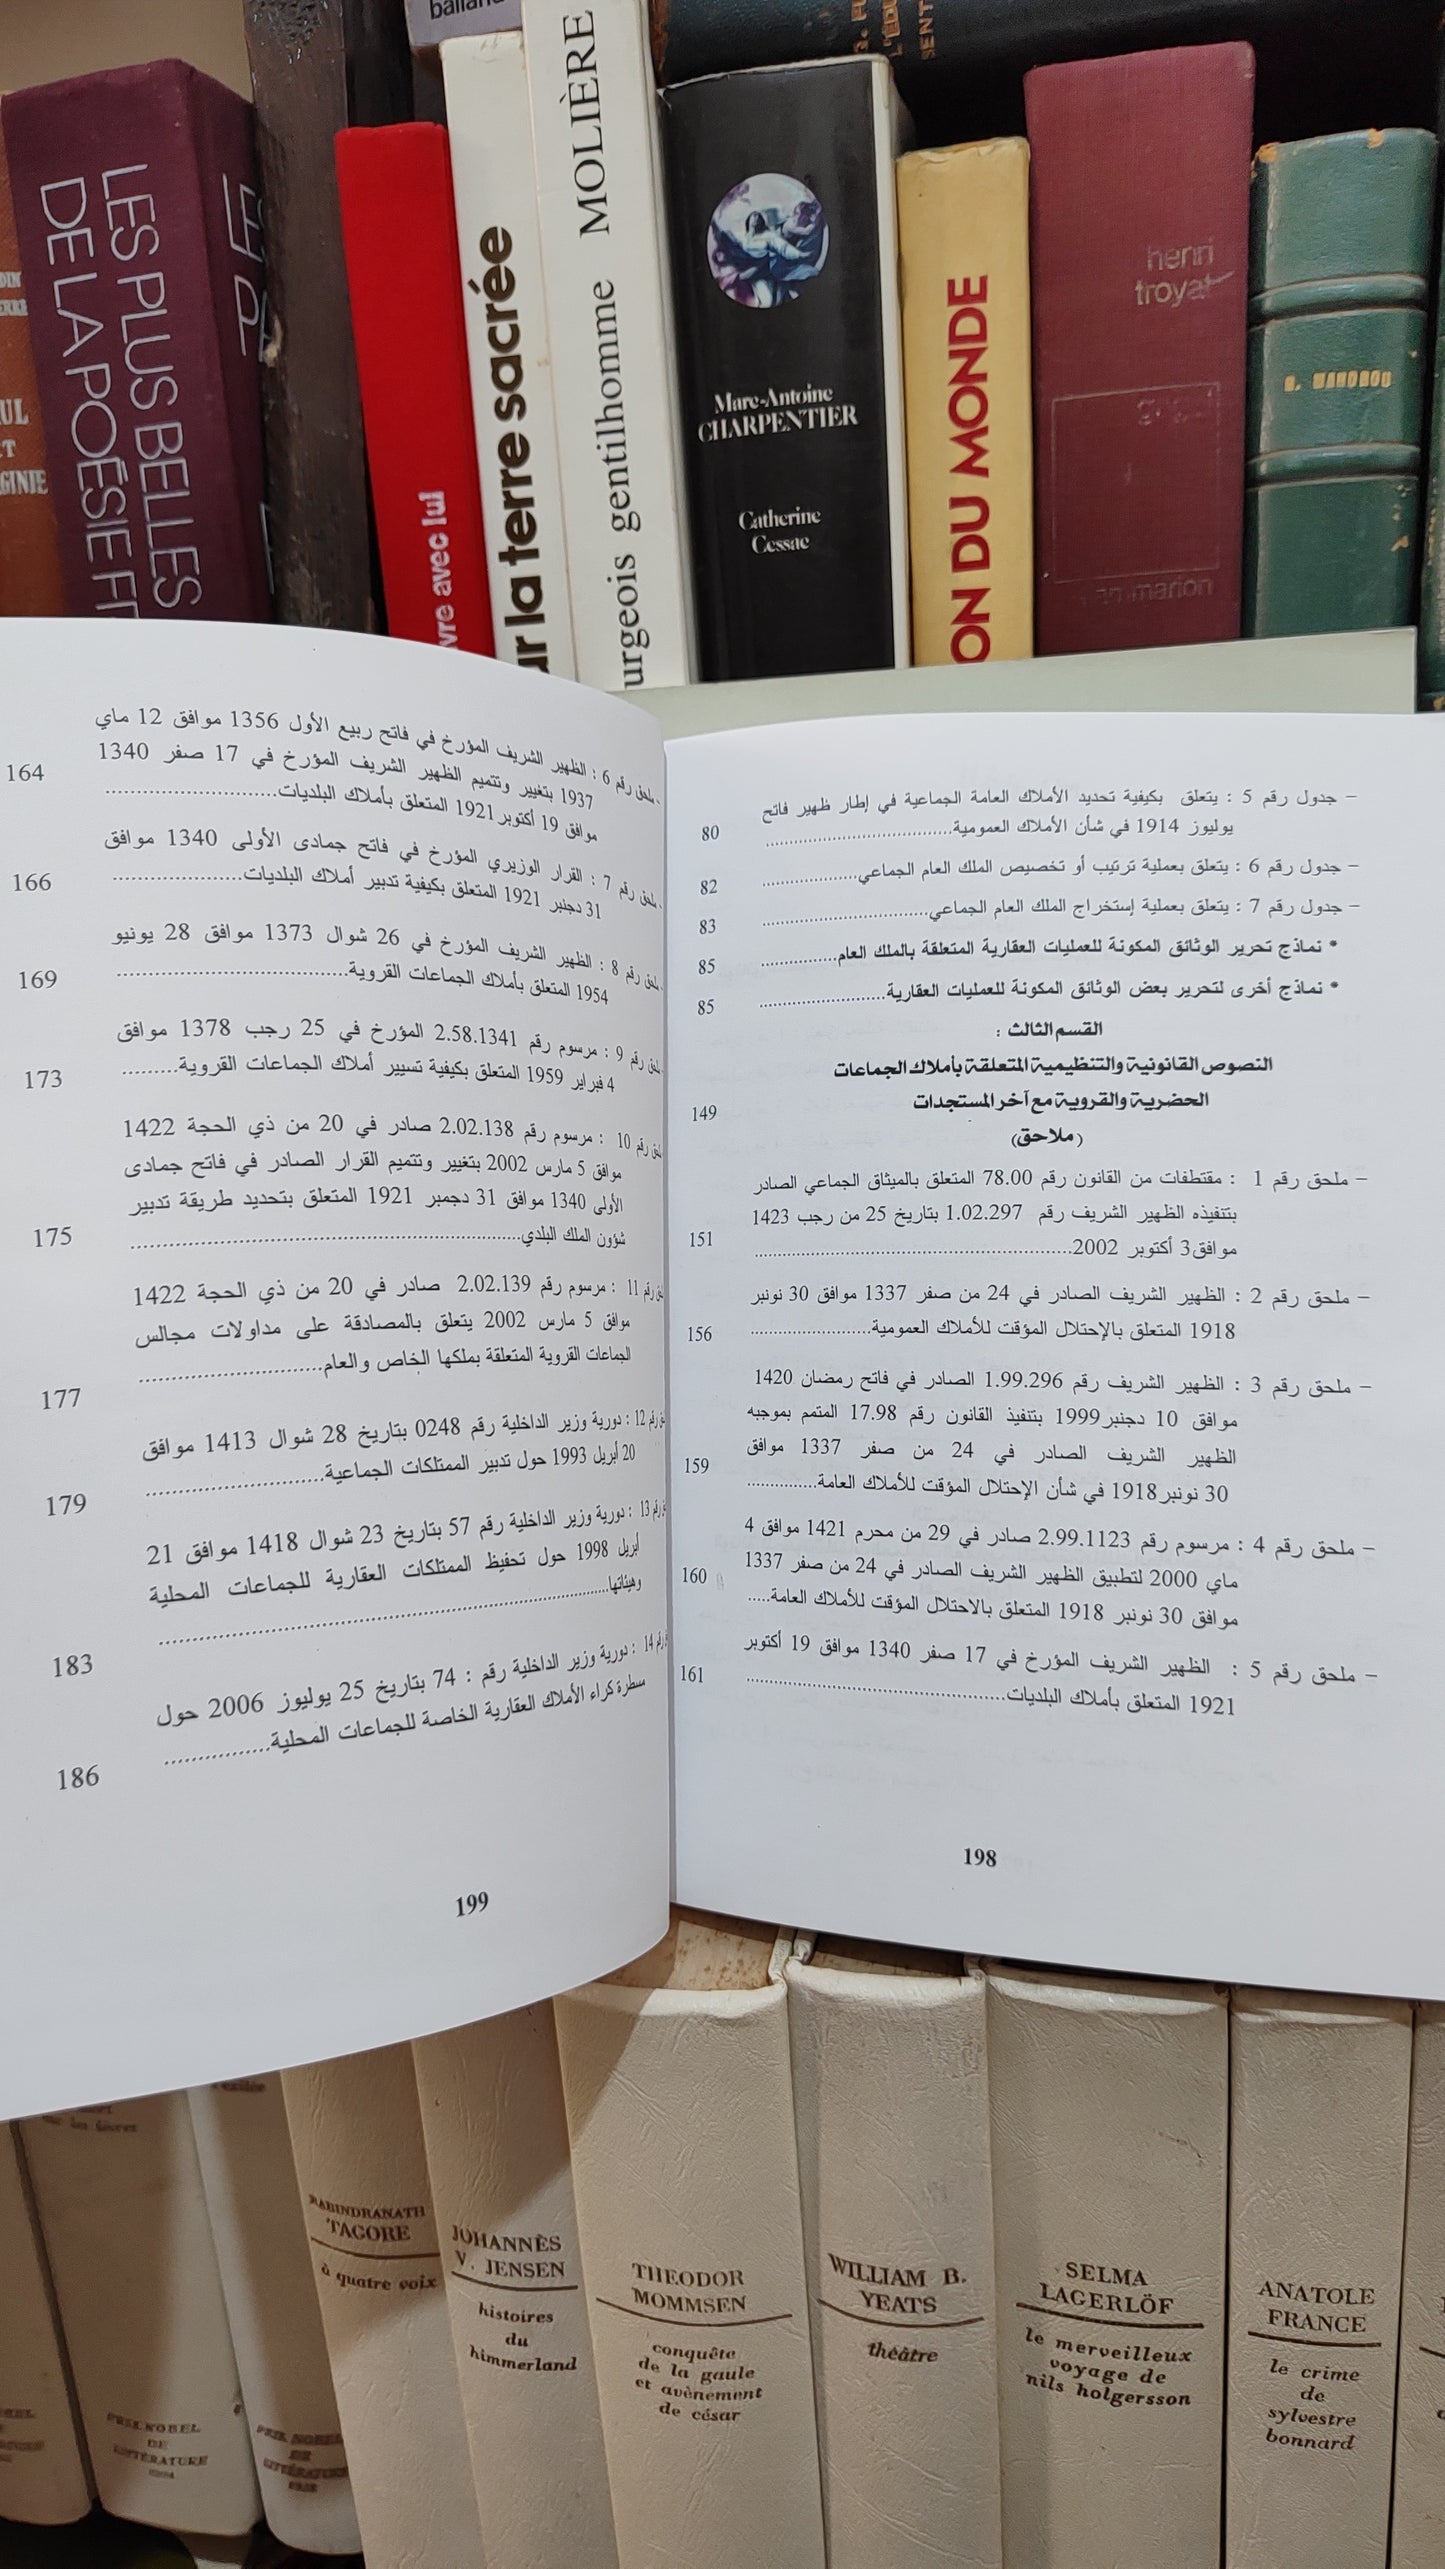 balland
LES PLUS BELLES
DE LA POÉSIE
MOLIÈRE
urgeois gentilhomme
ur la terre sacrée
vre avec lui
Marc-Antoine
CHARPENTIER
Catherine
Cessac
ON DU MONDE
henri
troyat
– جدول رقم 5 : يتعلق بكيفية تحديد الأملاك العامة الجماعية في إطار ظهير فاتح
يوليوز 1914 في شأن الأملاك العمومية.................................... 80
– جدول رقم 6 : يتعلق بعملية ترتيب أو تخصيص الملك العام الجماعي.................. 82
– جدول رقم 7 : يتعلق بعملية إستخراج الملك العام الجماعي............................... 83
* نماذج تحرير الوثائق المكونة للعمليات العقارية المتعلقة بالملك العام............... 85
* نماذج أخرى لتحرير بعض الوثائق المكونة للعمليات العقارية......................... 85
القسم الثالث :
النصوص القانونية والتنظيمية المتعلقة بأملاك الجماعات
الحضرية والقروية مع آخر المستجدات 149
(ملاحق)
– ملحق رقم 1 : مقتطفات من القانون رقم 78.00 المتعلق بالميثاق الجماعي الصادر
بتنفيذه الظهير الشريف رقم 1.02.297 بتاريخ 25 من رجب 1423
موافق3 أكتوبر 2002............................................................ 151
– ملحق رقم 2 : الظهير الشريف الصادر في 24 من صفر 1337 موافق 30 نونبر
1918 المتعلق بالإحتلال المؤقت للأملاك العمومية........................ 156
– ملحق رقم 3 : الظهير الشريف رقم 1.99.296 الصادر في فاتح رمضان 1420
موافق 10 دجنبر1999 بتنفيذ القانون رقم 17.98 المتمم بموجبه
الظهير الشريف الصادر في 24 من صفر 1337 موافق
30 نونبر1918 في شأن الإحتلال المؤقت للأملاك العامة............... 159
– ملحق رقم 4 : مرسوم رقم 2.99.1123 صادر في 29 من محرم 1421 موافق 4
ماي 2000 لتطبيق الظهير الشريف الصادر في 24 من صفر 1337
موافق 30 نونبر 1918 المتعلق بالاحتلال المؤقت للأملاك العامة..... 160
– ملحق رقم 5 : الظهير الشريف المؤرخ في 17 صفر 1340 موافق 19 أكتوبر
1921 المتعلق بأملاك البلديات................................................. 161
198
- ملحق رقم 6 : الظهير الشريف المؤرخ في فاتح ربيع الأول 1356 موافق 12 ماي
1937 بتغيير وتتميم الظهير الشريف المؤرخ في 17 صفر 1340
موافق 19 أكتوبر1921 المتعلق بأملاك البلديات............................. 164
- ملحق رقم 7 : القرار الوزيري المؤرخ في فاتح جمادى الأولى 1340 موافق
31 دجنبر 1921 المتعلق بكيفية تدبير أملاك البلديات..................... 166
رقم 8 : الظهير الشريف المؤرخ في 26 شوال 1373 موافق 28 يونيو
1954 المتعلق بأملاك الجماعات القروية...................................... 169
رقم 9 : مرسوم رقم 2.58.1341 المؤرخ في 25 رجب 1378 موافق
4 فبراير 1959 المتعلق بكيفية تسيير أملاك الجماعات القروية......... 173
رقم 10 : مرسوم رقم 2.02.138 صادر في 20 من ذي الحجة 1422
موافق 5 مارس 2002 بتغيير وتتميم القرار الصادر في فاتح جمادى
الأولى 1340 موافق 31 دجمبر 1921 المتعلق بتحديد طريقة تدبير
شؤون الملك البلدي................................................................. 175
رقم 11 : مرسوم رقم 2.02.139 صادر في 20 من ذي الحجة 1422
موافق 5 مارس 2002 يتعلق بالمصادقة على مداولات مجالس
الجماعات القروية المتعلقة بملكها الخاص والعام.............................. 177
رقم 12 : دورية وزير الداخلية رقم 0248 بتاريخ 28 شوال 1413 موافق
20 أبريل 1993 حول تدبير الممتلكات الجماعية............................. 179
رقم 13 : دورية وزير الداخلية رقم 57 بتاريخ 23 شوال 1418 موافق 21
أبريل 1998 حول تحفيظ الممتلكات العقارية للجماعات المحلية
وهيئاتها........................................................................... 183
رقم 14 : دورية وزير الداخلية رقم : 74 بتاريخ 25 يوليوز 2006 حول
مسطرة كراء الأملاك العقارية الخاصة للجماعات المحلية................ 186
199
PRIX NOBEL
DE
LITTÉRATURE
PRIX NOBEL
DE
LITTÉRATURE
RABINDRANATH
TAGORE
à quatre voix
JOHANNÈS
V. JENSEN
histoires
du
himmerland
THEODOR
MOMMSEN
conquête
de la gaule
et avènement
de césar
WILLIAM B.
YEATS
théâtre
SELMA
LAGERLÖF
le merveilleux
voyage de
nils holgersson
ANATOLE
FRANCE
le crime
de
sylvestre
bonnard